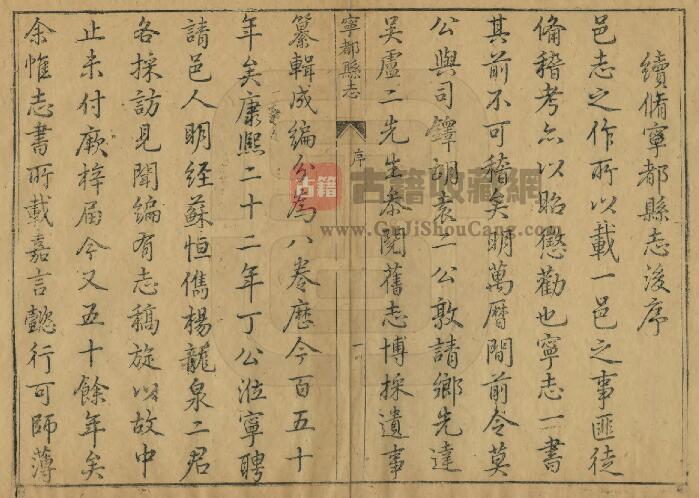 續脩寧都縣志後序
邑志之作所以載一邑之事匪徒
俻稽考亦以昭懲勸也寧志一書
其前不可稽矣明萬曆間前令莫
公與司鐸胡袁二公敦請鄉先達
吳盧二先生叅閱舊志博採遺事
寧都縣志
序
一
纂輯成編分為八卷歷今百五十
年矣康熙二十二年丁公涖寧聘
請邑人明經蘇恒儁楊龍泉二君
各採訪見聞編有志稿旋以故中
止未付厥梓届今又五十餘年矣
余惟志書所載嘉言懿行可師薄
古籍
古籍收藏網
www.GuJiShouCang.com